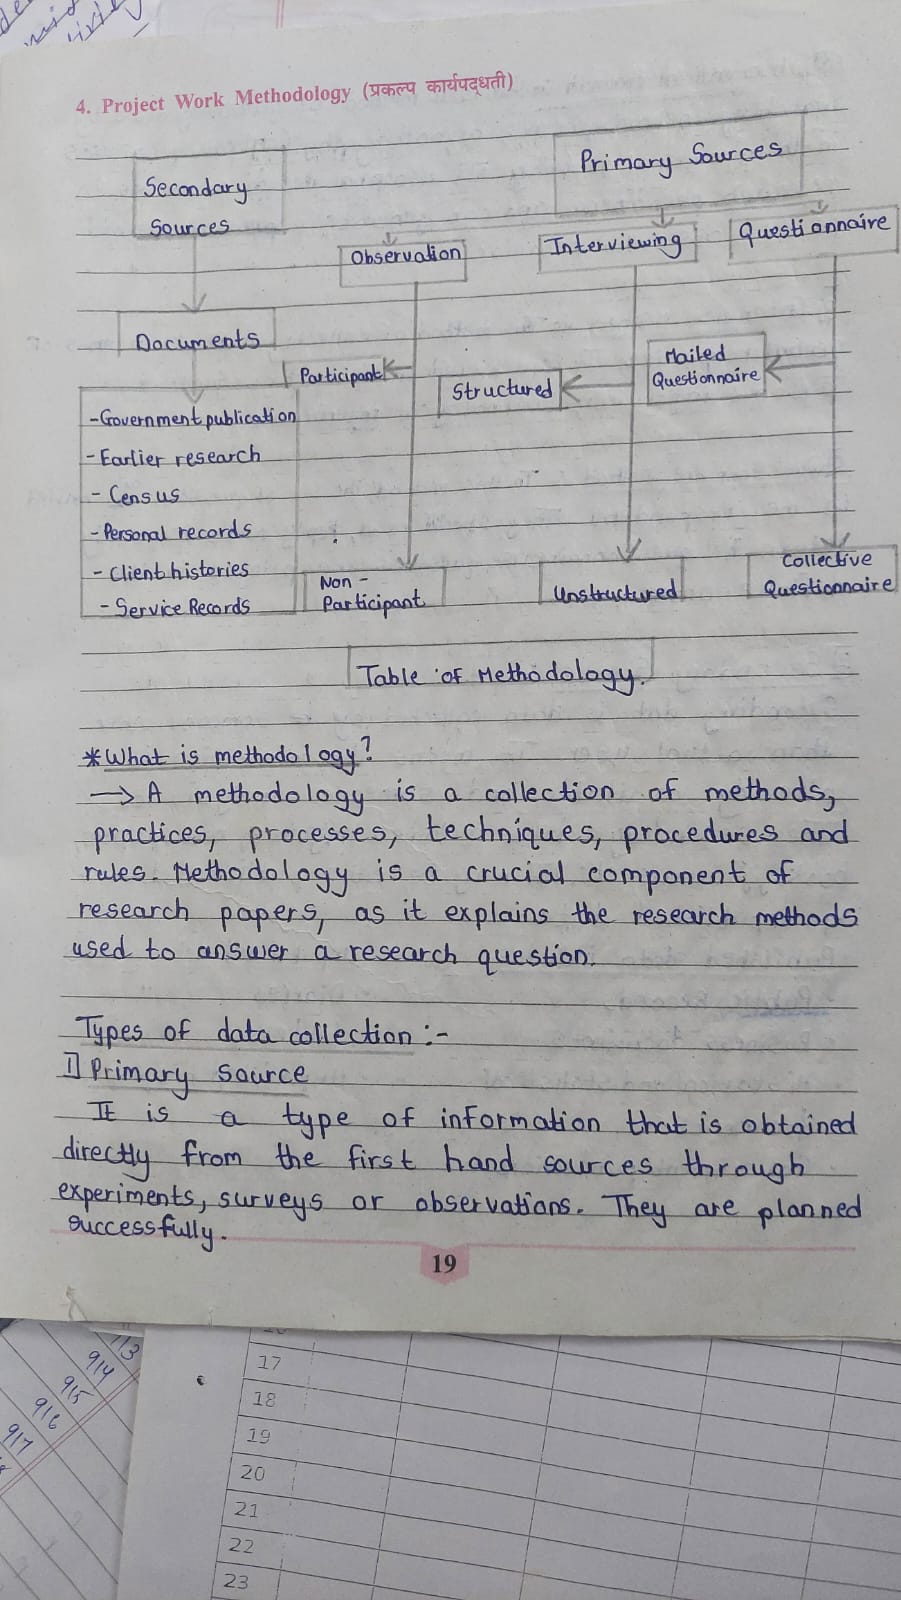 4. Project Work Methodology (प्रकल्प कार्यपद्धती)
Primary Sources
Secondary
Sources
Observation
Interviewing
Questionnaire
Documents
Participant
Structured
Mailed
Questionnaire
-Government publication
- Earlier research
- Census
- Personal records
- Client histories
- Service Records
Non -
Participant
Unstructured
Collective
Questionnaire
Table of Methodology.
*What is methodology?
→ A methodology is a collection of methods,
practices, processes, techniques, procedures and
rules. Methodology is a crucial component of
research papers, as it explains the research methods
used to answer a research question.
Types of data collection :-
1] Primary source
It is a type of information that is obtained
directly from the first hand sources through
experiments, surveys or observations. They are planned
successfully.
19
913
914
915
916
917
17
18
19
20
21
22
23